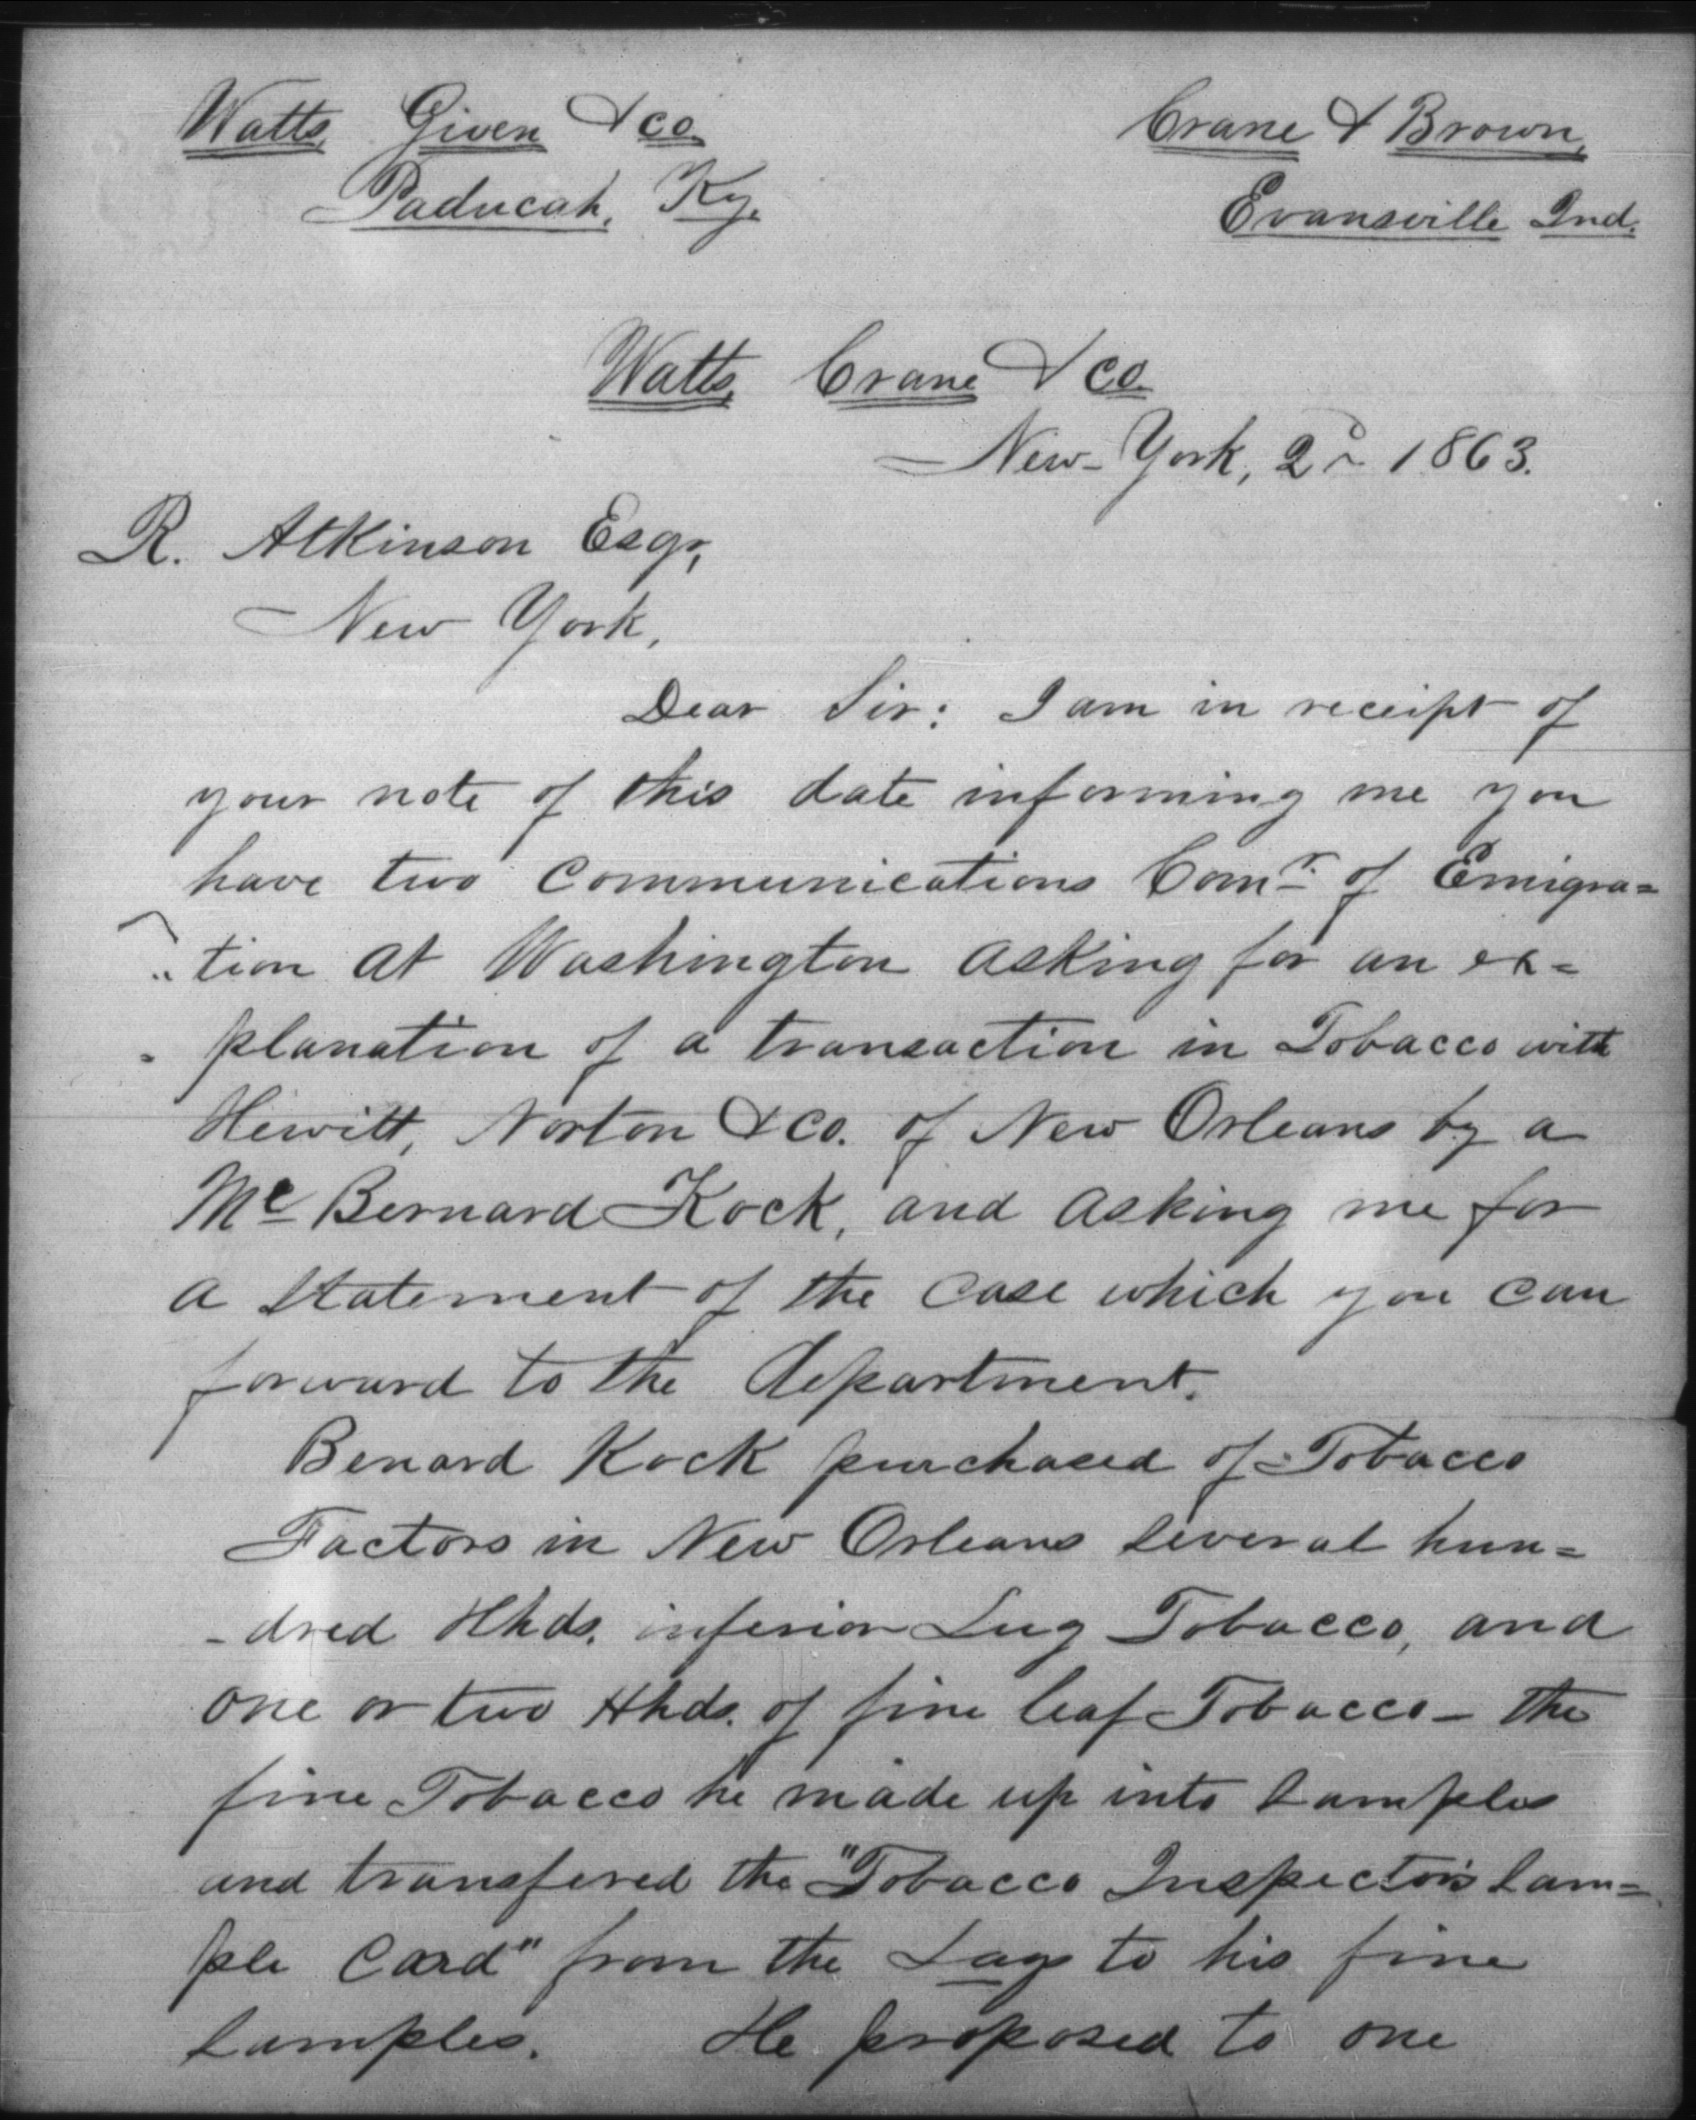 Watts, Given & co. Crane & Brown,
Paducah, Ky. Evansville Ind.
Watts, Crane & co.
New-York, 2d 1863.
R. Atkinson Esqr,
New York,
Dear Sir: I am in receipt of
your note of this date informing me you
have two communications Comr. of Emigra=
tion at Washington asking for an ex=
planation of a transaction in Tobacco with
Hewitt, Norton & co. of New Orleans by a
Mc Bernard Kock, and asking me for
a statement of the case which you can
forward to the department.
Benard Kock purchased of Tobacco
Factors in New Orleans several hun=
-dred Hhds. inferior Lug Tobacco, and
one or two Hhds. of fine leaf Tobacco - the
fine Tobacco he made up into samples
and transfered the "Tobacco Inspector's sam=
ple card" from the Lugs to his fine
samples. He proposed to one